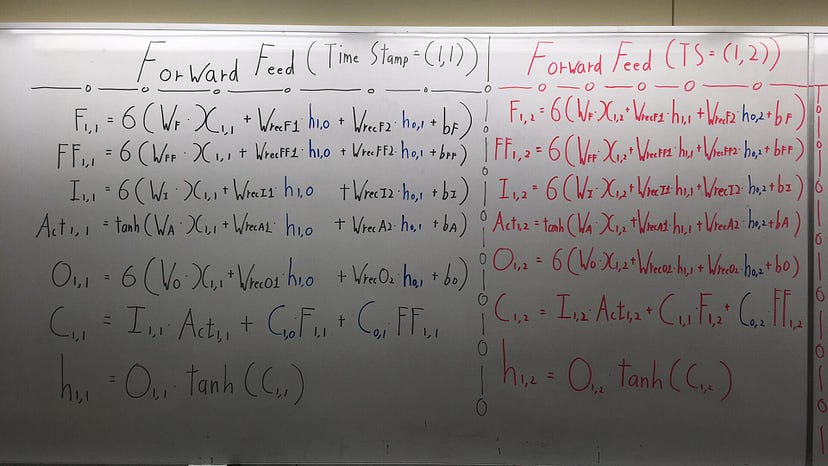 Forward Feed (Time Stamp = (1,1))
F1,1 = 6(WF · X1,1 + WrecF1 · h1,0 + WrecF2 · h0,1 + bF)
FF1,1 = 6(WFF · X1,1 + WrecFF1 · h1,0 + WrecFF2 · h0,1 + bFF)
I1,1 = 6(WI · X1,1 + WrecI1 · h1,0 + WrecI2 · h0,1 + bI)
Act1,1 = tanh(WA · X1,1 + WrecA1 · h1,0 + WrecA2 · h0,1 + bA)
O1,1 = 6(WO · X1,1 + WrecO1 · h1,0 + WrecO2 · h0,1 + bO)
C1,1 = I1,1 · Act1,1 + C1,0 · F1,1 + C0,1 · FF1,1
h1,1 = O1,1 · tanh(C1,1)
Forward Feed (TS = (1,2))
F1,2 = 6(WF · X1,2 + WrecF1 · h1,1 + WrecF2 · h0,2 + bF)
FF1,2 = 6(WFF · X1,2 + WrecFF1 · h1,1 + WrecFF2 · h0,2 + bFF)
I1,2 = 6(WI · X1,2 + WrecI1 · h1,1 + WrecI2 · h0,2 + bI)
Act1,2 = tanh(WA · X1,2 + WrecA1 · h1,1 + WrecA2 · h0,2 + bA)
O1,2 = 6(WO · X1,2 + WrecO1 · h1,1 + WrecO2 · h0,2 + bO)
C1,2 = I1,2 · Act1,2 + C1,1 · F1,2 + C0,2 · FF1,2
h1,2 = O1,2 · tanh(C1,2)